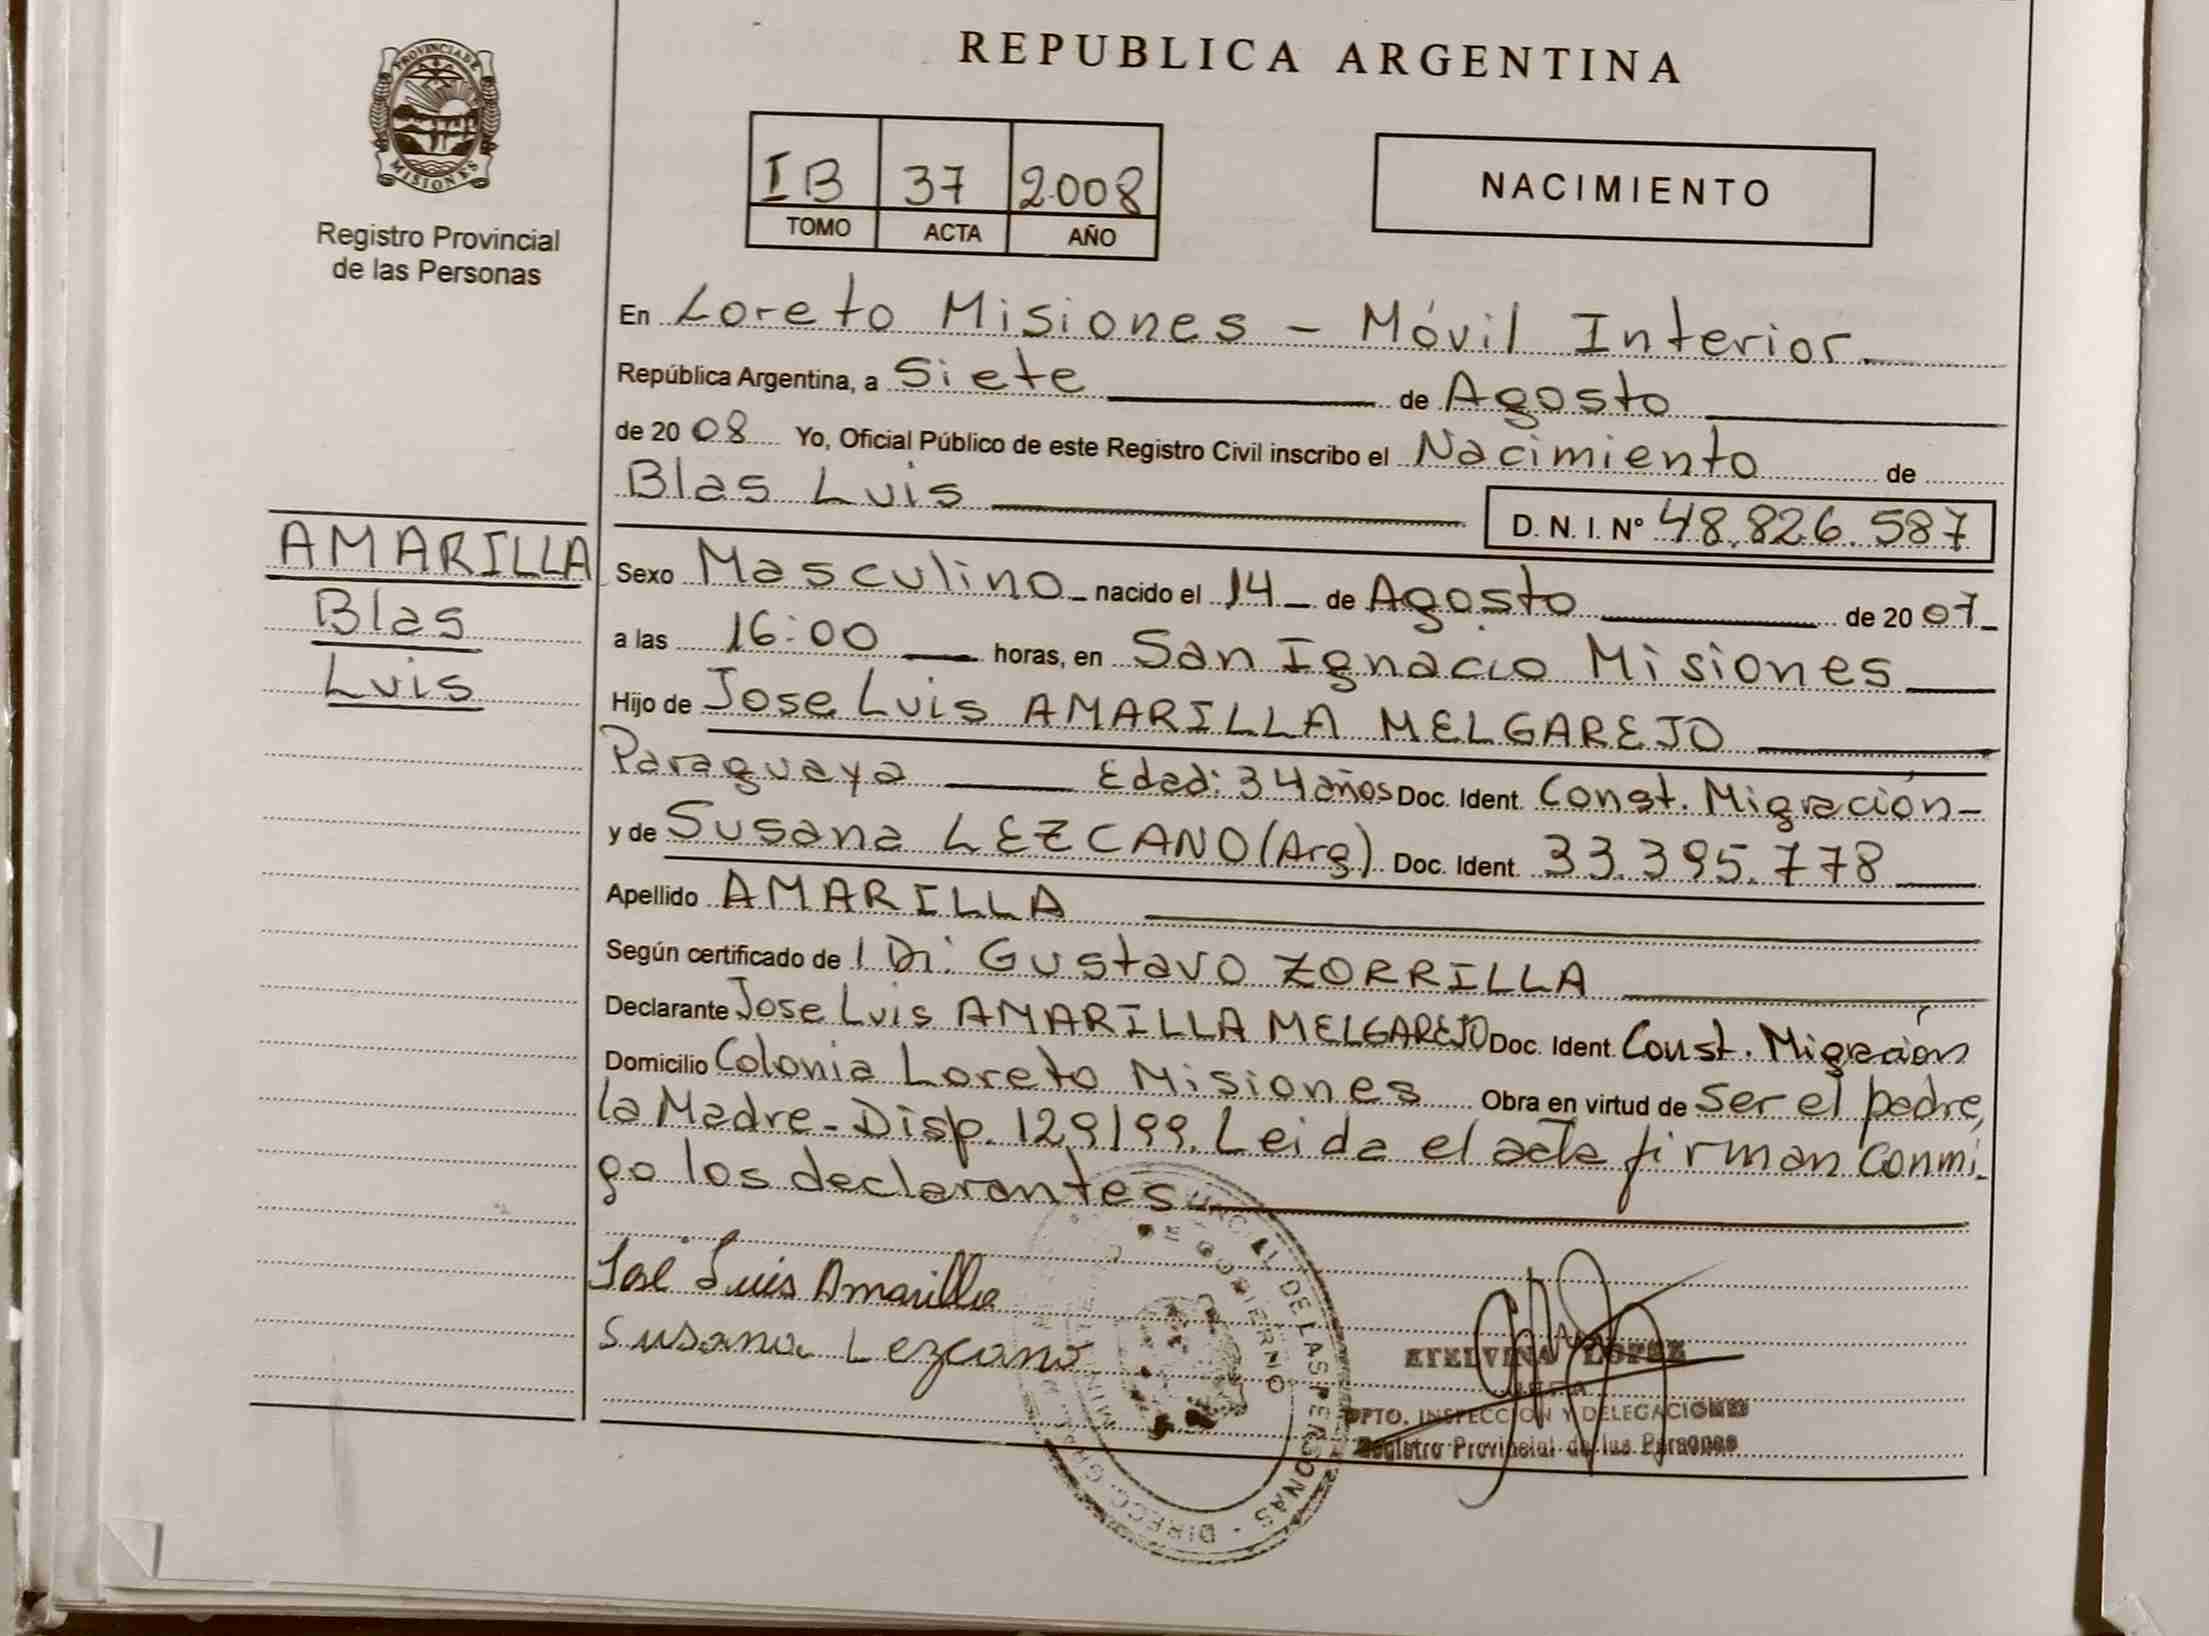 REPUBLICA ARGENTINA
PROVINCIA DE MISIONES
Registro Provincial
de las Personas
IB 37 2008
TOMO ACTA AÑO
NACIMIENTO
En Loreto Misiones - Móvil Interior
República Argentina, a Siete de Agosto
de 2008 Yo, Oficial Público de este Registro Civil inscribo el Nacimiento de
Blas Luis D. N. I. Nº 48.826.587
AMARILLA
Blas
Luis
Sexo Masculino nacido el 14 de Agosto de 2007
a las 16:00 horas, en San Ignacio Misiones
Hijo de Jose Luis AMARILLA MELGAREJO
Paraguaya Edad: 34 años Doc. Ident. Const. Migración-
y de Susana LEZCANO (Arg) Doc. Ident. 33.395.778
Apellido AMARILLA
Según certificado de Gustavo ZORRILLA
Declarante Jose Luis AMARILLA MELGAREJO Doc. Ident. Const. Migración
Domicilio Colonia Loreto Misiones Obra en virtud de ser el padre,
la Madre - Disp. 129/99. Leida el acta firman conmi-
go los declarantes
José Luis Amarilla
Susana Lezcano
ETELVINA LOPEZ
JEFA
DPTO. INSPECCION Y DELEGACIONES
Registro Provincial de las Personas
DE LAS PERSONAS - DIREC. GRAL.
DE GOBIERNO